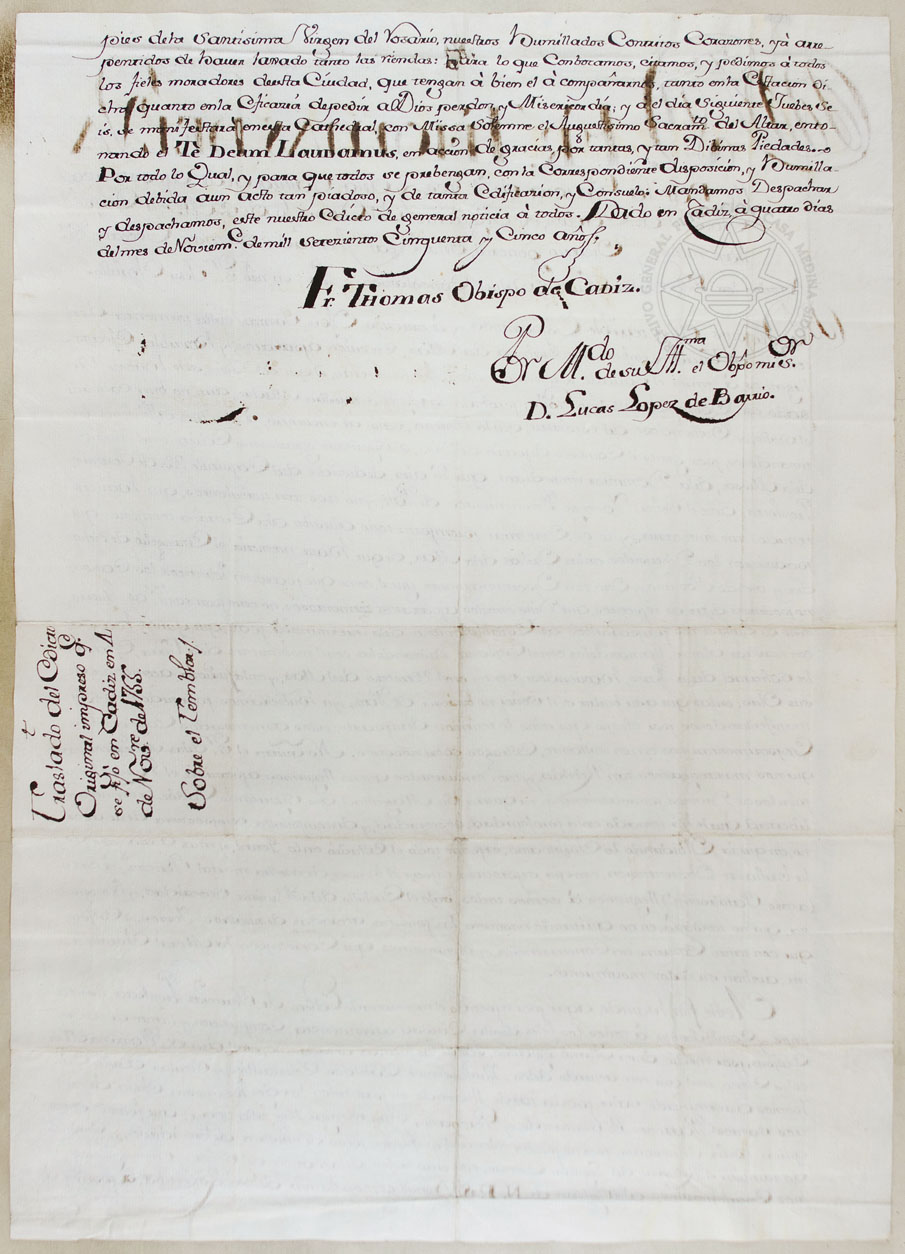 pies de la Santisima Virgen del Rosario, nuestros Humillados Contritos Corazones, yà arre-
pentidos de haver laxado tanto las riendas: Para lo que Conbocamos, citamos, y pedimos à todos
los fieles moradores de esta Ciudad, que tengan à bien el àcompañarnos, tanto en la Estacion di
cha, quanto en la Eficacia de pedir a Dios perdon, y Misericordia; y à el dia Siguiente Jueves Se-
is, se manifestarà en essa Cathedral, con Missa Solemne el Augustisimo Sacramto. del Altar, ento-
nando el Te Deum Laudamus, en accion de gracias, por tantas, y tan Divinas Piedades.
Por todo lo Qual, y para que todos se prebengan, con la Correspondiente disposicion, y Humilla
cion debida a un acto tan piadoso, y de tanta Edificacion, y Consuelo: Mandamos Despachar
y despachamos, este nuestro Edicto de general noticia à todos. Dado en Cadiz, à quatro dias
del mes de Noviem.e de mill Setecientos Cinquenta y Cinco años.
Fr. Thomas Obispo de Cadiz.
Por M.do de su Illma. el Obpo mi Sor.
D. Lucas Lopez de Barrio.
Traslado del Edicto
Original impreso q.e
se fijò en Cadiz en 4
de Nov.re de 1755.
Sobre el temblor.